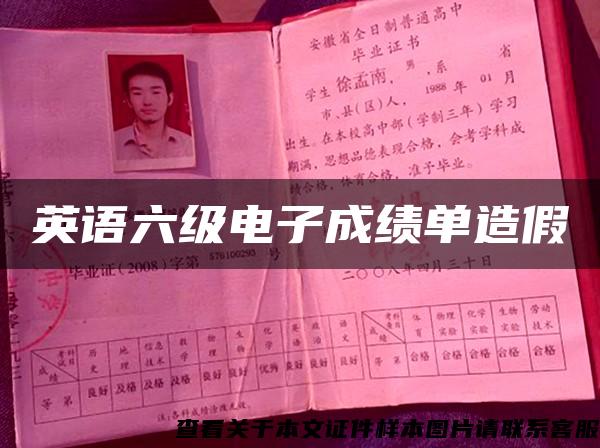 安徽省全日制普通高中
毕业证书
学生 徐孟南，男，系 省
市、县(区)人，1988年01月
出生。在本校高中部（学制三年）学习
期满，思想品德表现合格，会考学科成
绩合格，体育合格，准予毕业。
英语六级电子成绩单造假
毕业证(2008)字第 576100293 号
二〇〇八年四月三十日
成绩 历史 地理 信息技术 数学 物理 生物 化学 英语 政治 语文 体育 物理实验 化学实验 生物实验 劳动技术
等第 良好 及格 及格 及格 良好 良好 优秀 良好 等第 合格 合格 合格 合格 合格
注:各科成绩涂改无效。
查看关于本文证件样本图片请联系客服